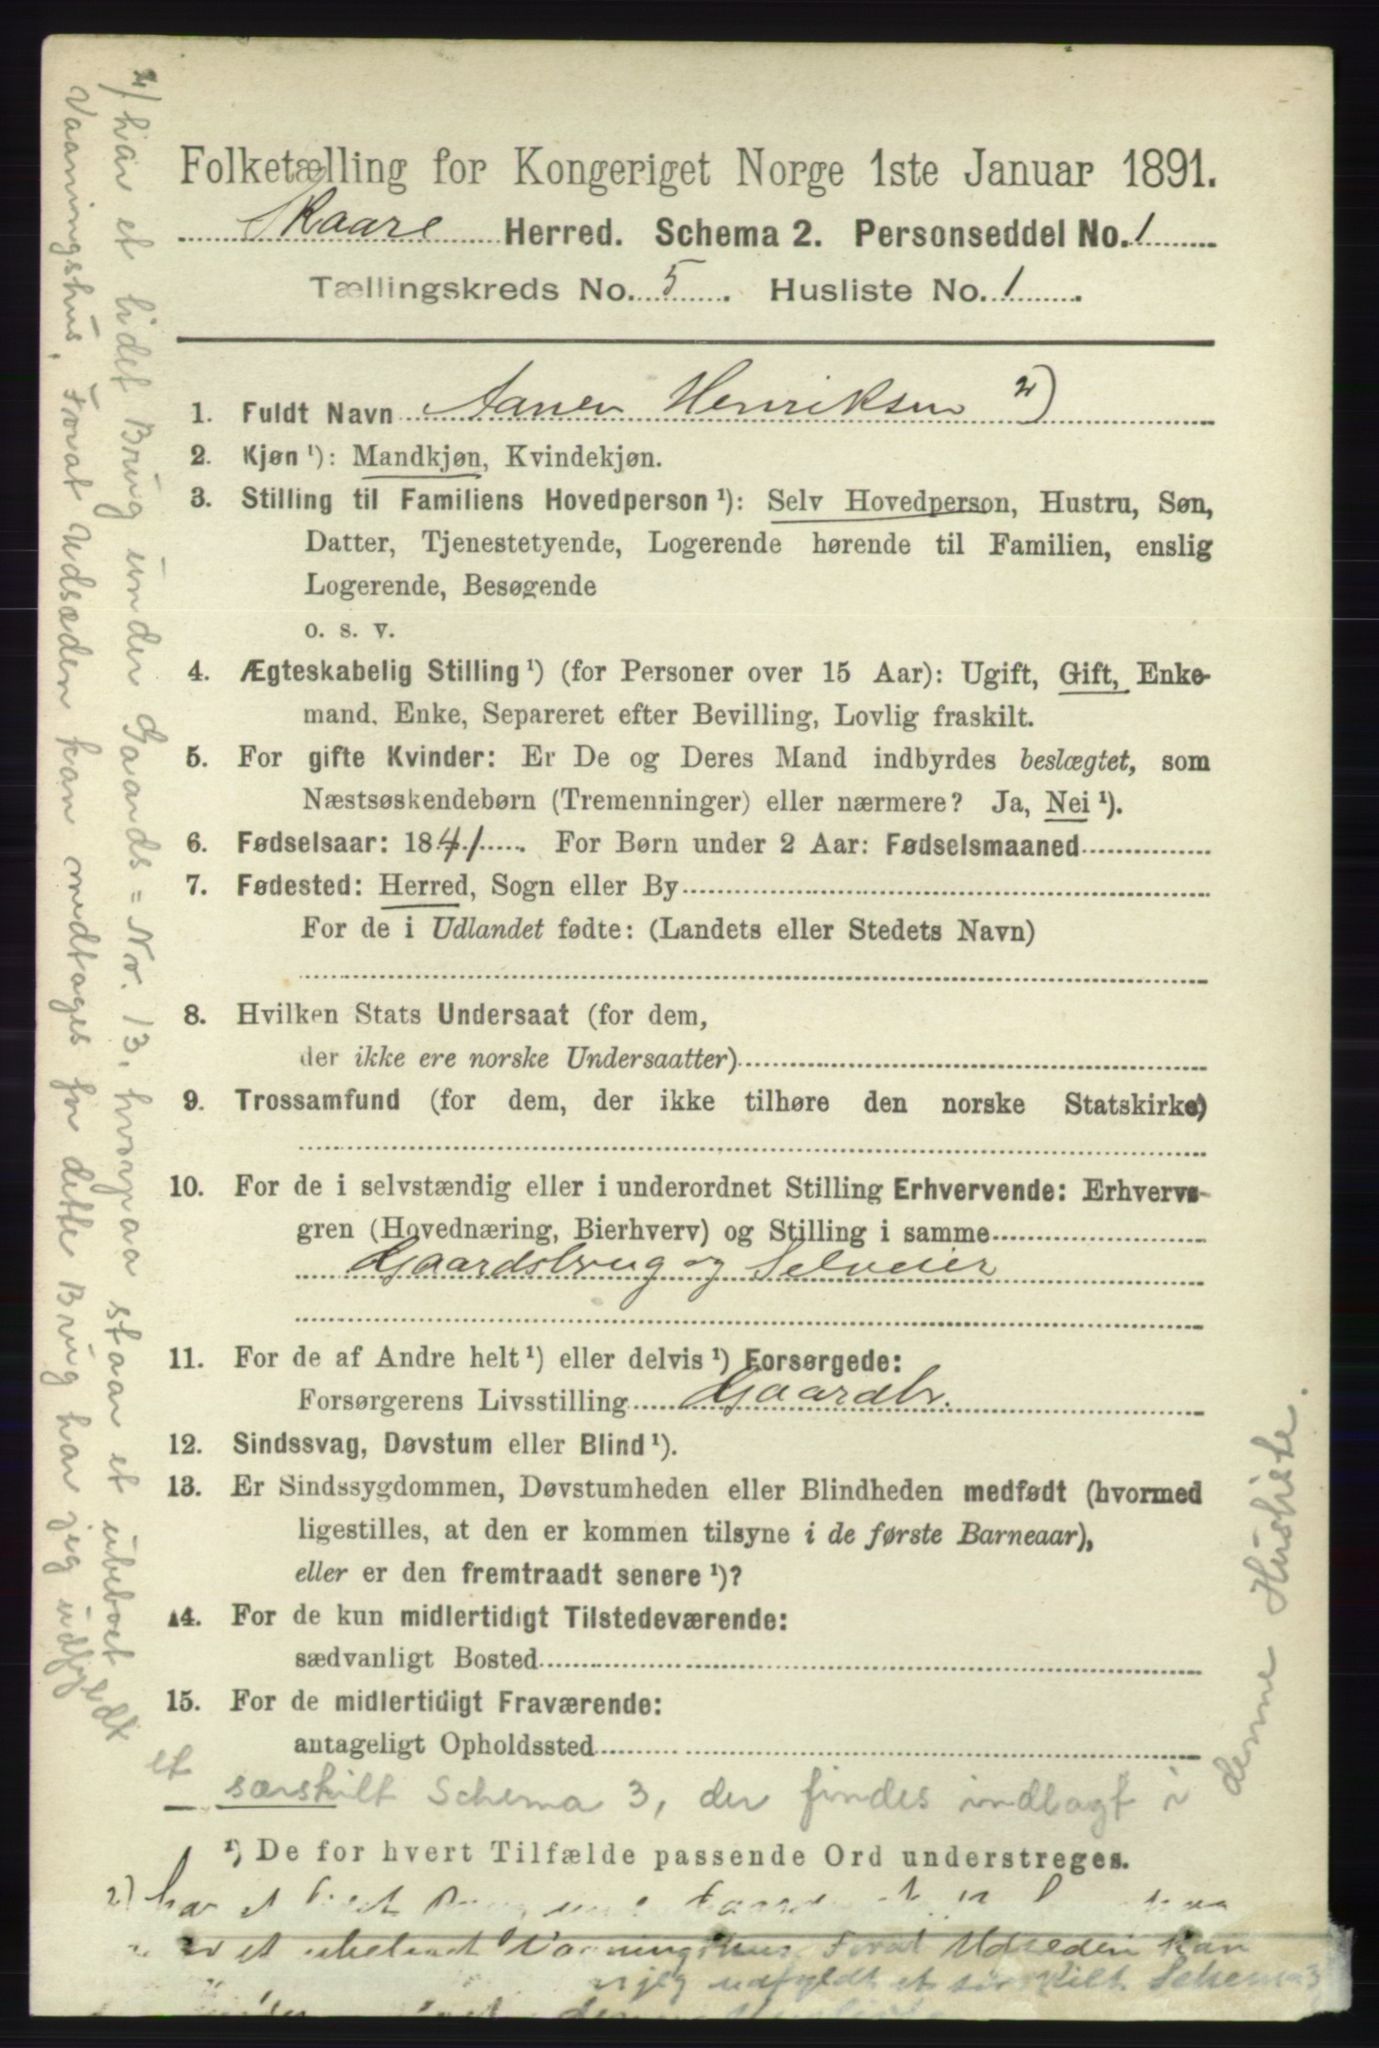 Folketælling for Kongeriget Norge 1ste Januar 1891.
Skaare Herred. Schema 2. Personseddel No. 1
Tællingskreds No. 5. Husliste No. 1.
1. Fuldt Navn Aanen Henriksen 2)
2. Kjøn ¹): Mandkjøn, Kvindekjøn.
3. Stilling til Familiens Hovedperson ¹): Selv Hovedperson, Hustru, Søn,
Datter, Tjenestetyende, Logerende hørende til Familien, enslig
Logerende, Besøgende
o. s. v.
4. Ægteskabelig Stilling ¹) (for Personer over 15 Aar): Ugift, Gift, Enke-
mand, Enke, Separeret efter Bevilling, Lovlig fraskilt.
5. For gifte Kvinder: Er De og Deres Mand indbyrdes beslægtet, som
Næstsøskendebørn (Tremenninger) eller nærmere? Ja, Nei ¹).
6. Fødselsaar: 1841. For Børn under 2 Aar: Fødselsmaaned
7. Fødested: Herred, Sogn eller By
For de i Udlandet fødte: (Landets eller Stedets Navn)
8. Hvilken Stats Undersaat (for dem,
der ikke ere norske Undersaatter)
9. Trossamfund (for dem, der ikke tilhøre den norske Statskirke)
10. For de i selvstændig eller i underordnet Stilling Erhvervende: Erhvervs-
gren (Hovednæring, Bierhverv) og Stilling i samme
Gaardsbrug og Selveier
11. For de af Andre helt ¹) eller delvis ¹) Forsørgede:
Forsørgerens Livsstilling Gaardbr.
12. Sindssvag, Døvstum eller Blind ¹).
13. Er Sindssygdommen, Døvstumheden eller Blindheden medfødt (hvormed
ligestilles, at den er kommen tilsyne i de første Barneaar),
eller er den fremtraadt senere ¹)?
14. For de kun midlertidigt Tilstedeværende:
sædvanligt Bosted
15. For de midlertidigt Fraværende:
antageligt Opholdssted
¹) De for hvert Tilfælde passende Ord understreges.
2) har et lidet Brug under Gaards=Nr. 13, hvorpaa staar et ubeboet
Vaaningshus. Forat Udsæden kan medtages for dette Brug har jeg udfyldt
et
særskilt Schema 3, der findes indlagt i
denne Husliste.
2) har et
et ubeboet Vaaningshus Forat Udsæden kan
jeg udfyldt et særskilt Schema 3